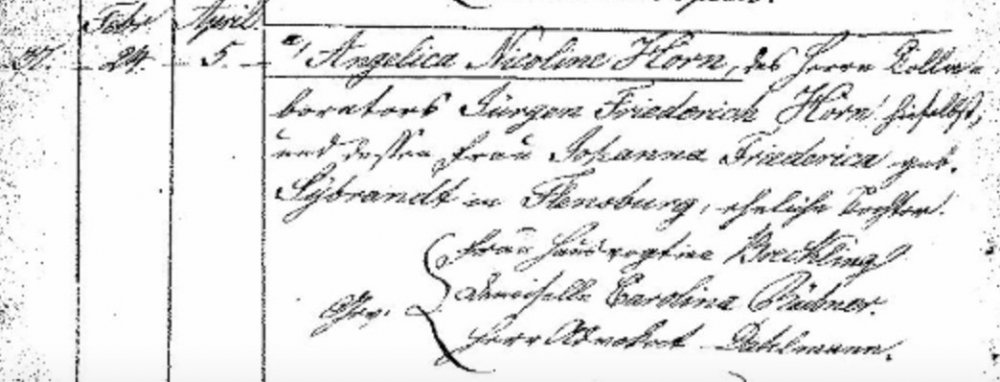 Febr April
37. 24. 5. a, Angelica Nicoline Horn, des Herrn Colla-
borators Jürgen Friederich Horn hieselbst,
und dessen Frau Johanna Friederica geb.
Sybrandt in Flensburg, eheliche Tochter.
Frau Hausvogtin Boeckling
Gev. Demoiselle Carolina Büdner.
Herr Advokat Dahlmann.